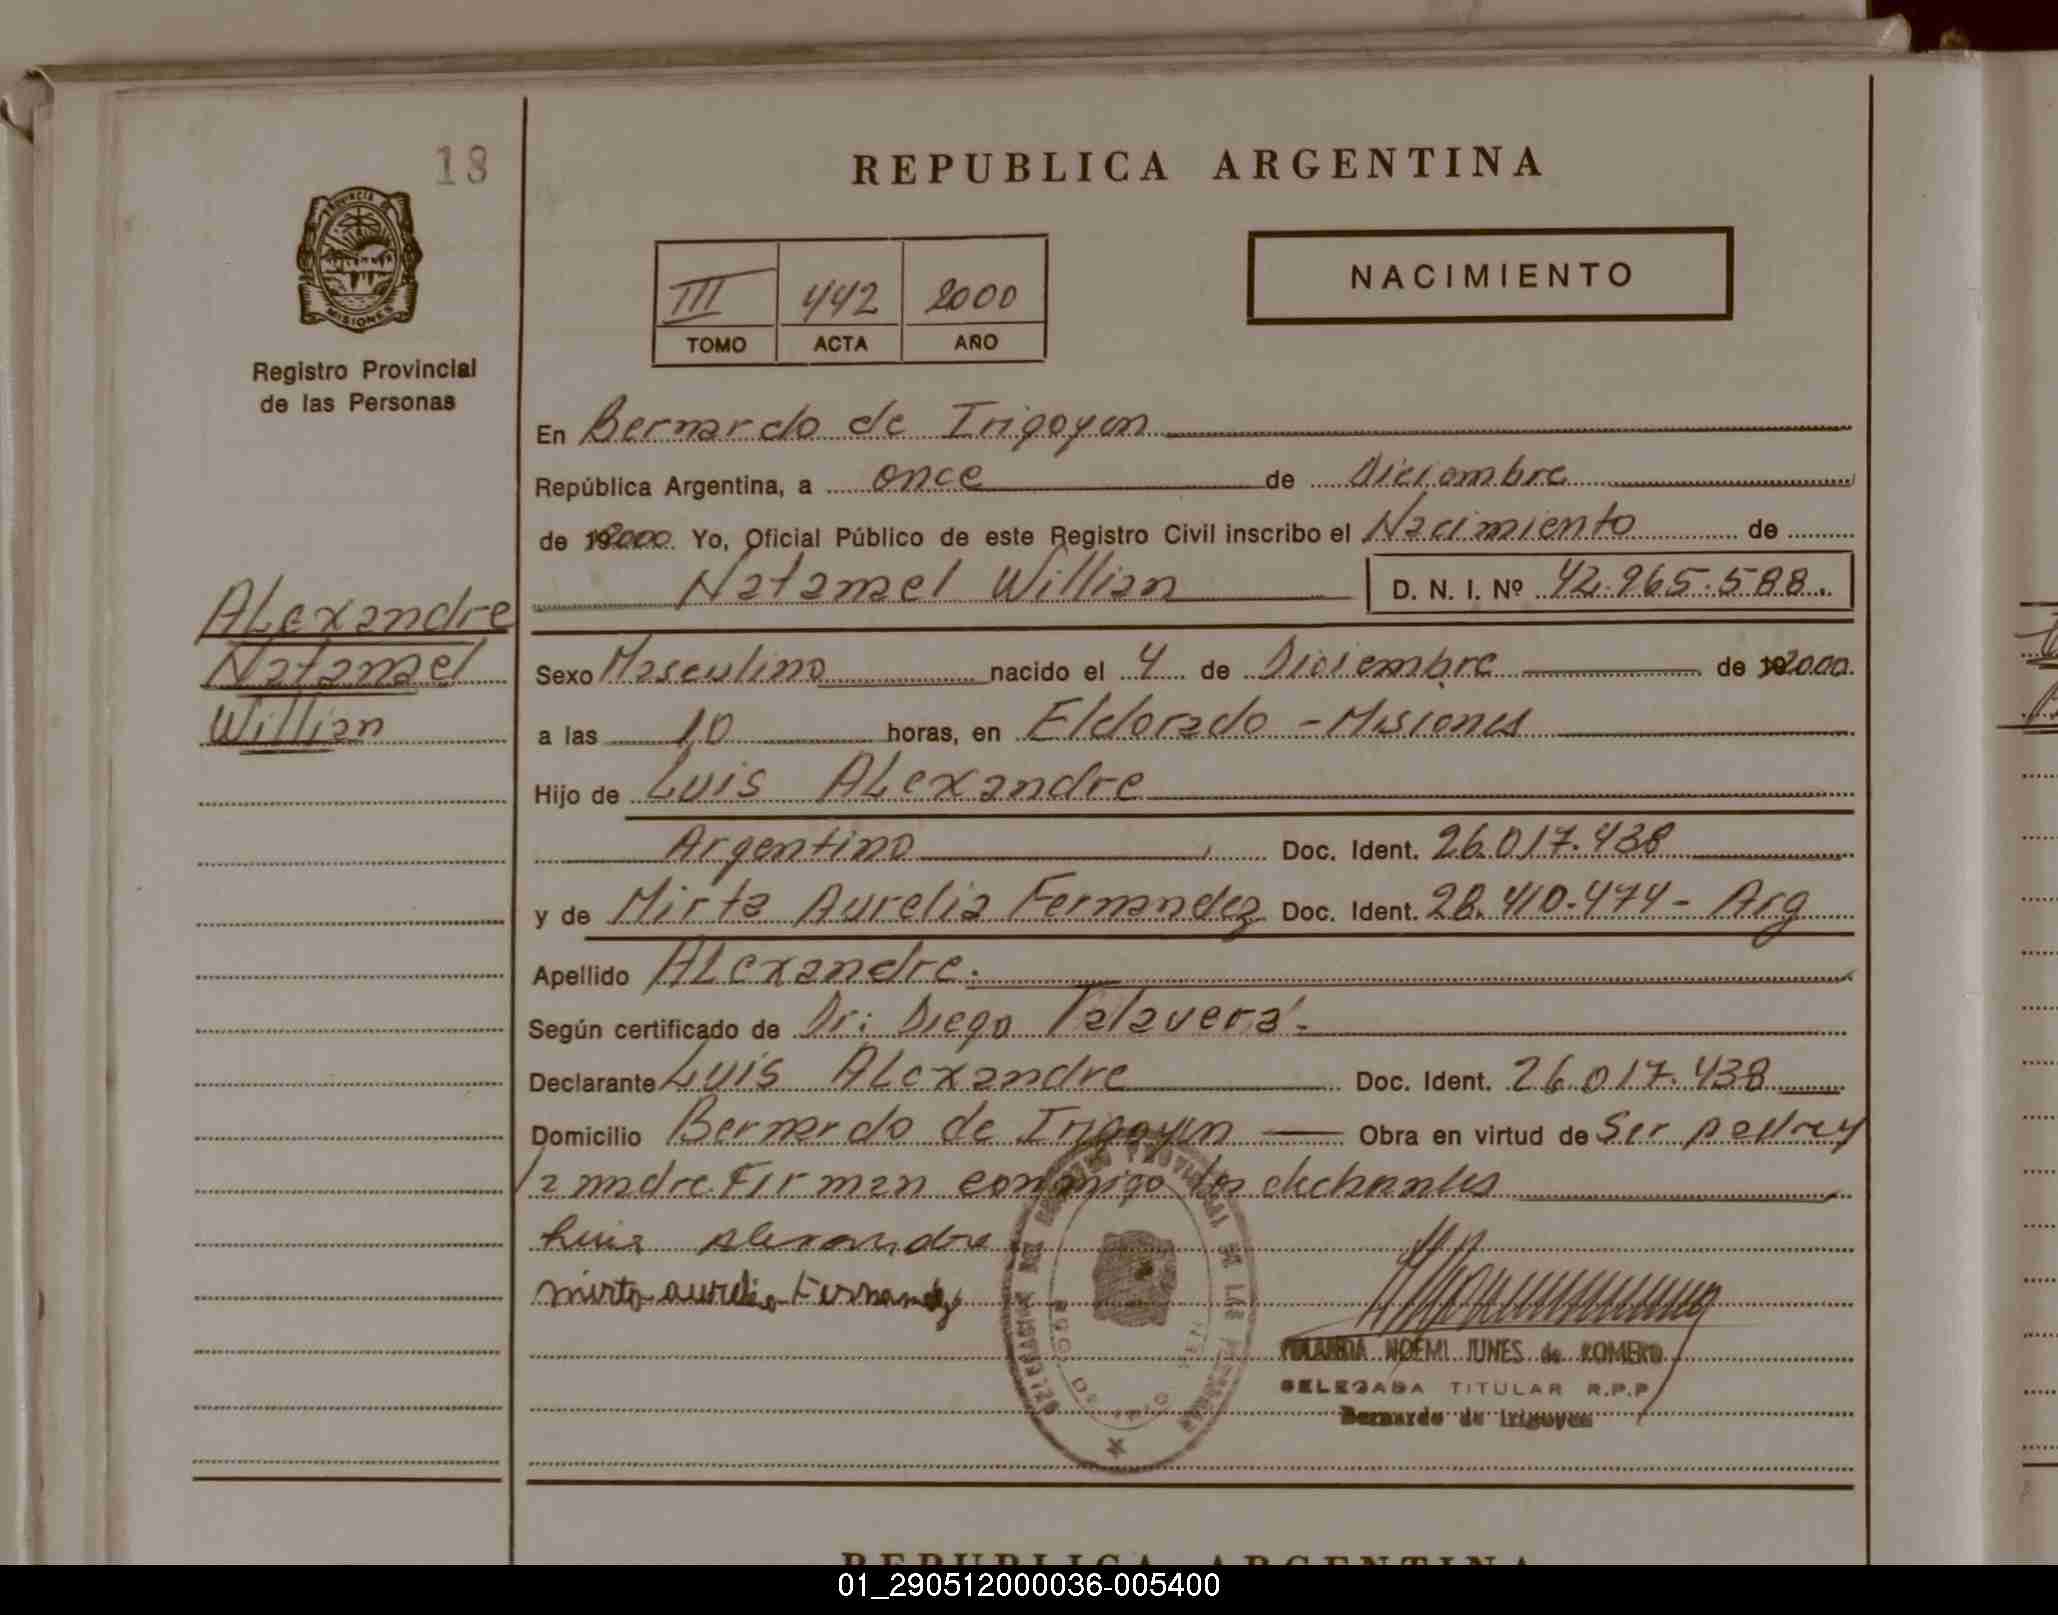 18
REPUBLICA ARGENTINA
PROVINCIA DE
MISIONES
Registro Provincial
de las Personas
III 442 2000
TOMO ACTA AÑO
NACIMIENTO
En Bernardo de Irigoyen
República Argentina, a once de Diciembre
de 2000. Yo, Oficial Público de este Registro Civil inscribo el Nacimiento de
Natanael Willian D. N. I. Nº 42.965.588.
ALexandre
Natanael
Willian
Sexo Masculino nacido el 4 de Diciembre de 2000.
a las 10 horas, en Eldorado - Misiones
Hijo de Luis ALexandre
Argentino Doc. Ident. 26.017.438
y de Mirta Aurelia Fernandez Doc. Ident. 28.410.474 - Arg
Apellido ALexandre.
Según certificado de Dr: Diego Talavera -
Declarante Luis ALexandre Doc. Ident. 26.017.438
Domicilio Bernardo de Irigoyen Obra en virtud de Ser padre y
la madre. Firman conmigo los
Luis Alexandre
mirta aurelia Fernandez
NOEMI de ROMERO
DELEGADA TITULAR R.P.P
Bernardo de Irigoyen
REPUBLICA ARGENTINA
01_290512000036-005400